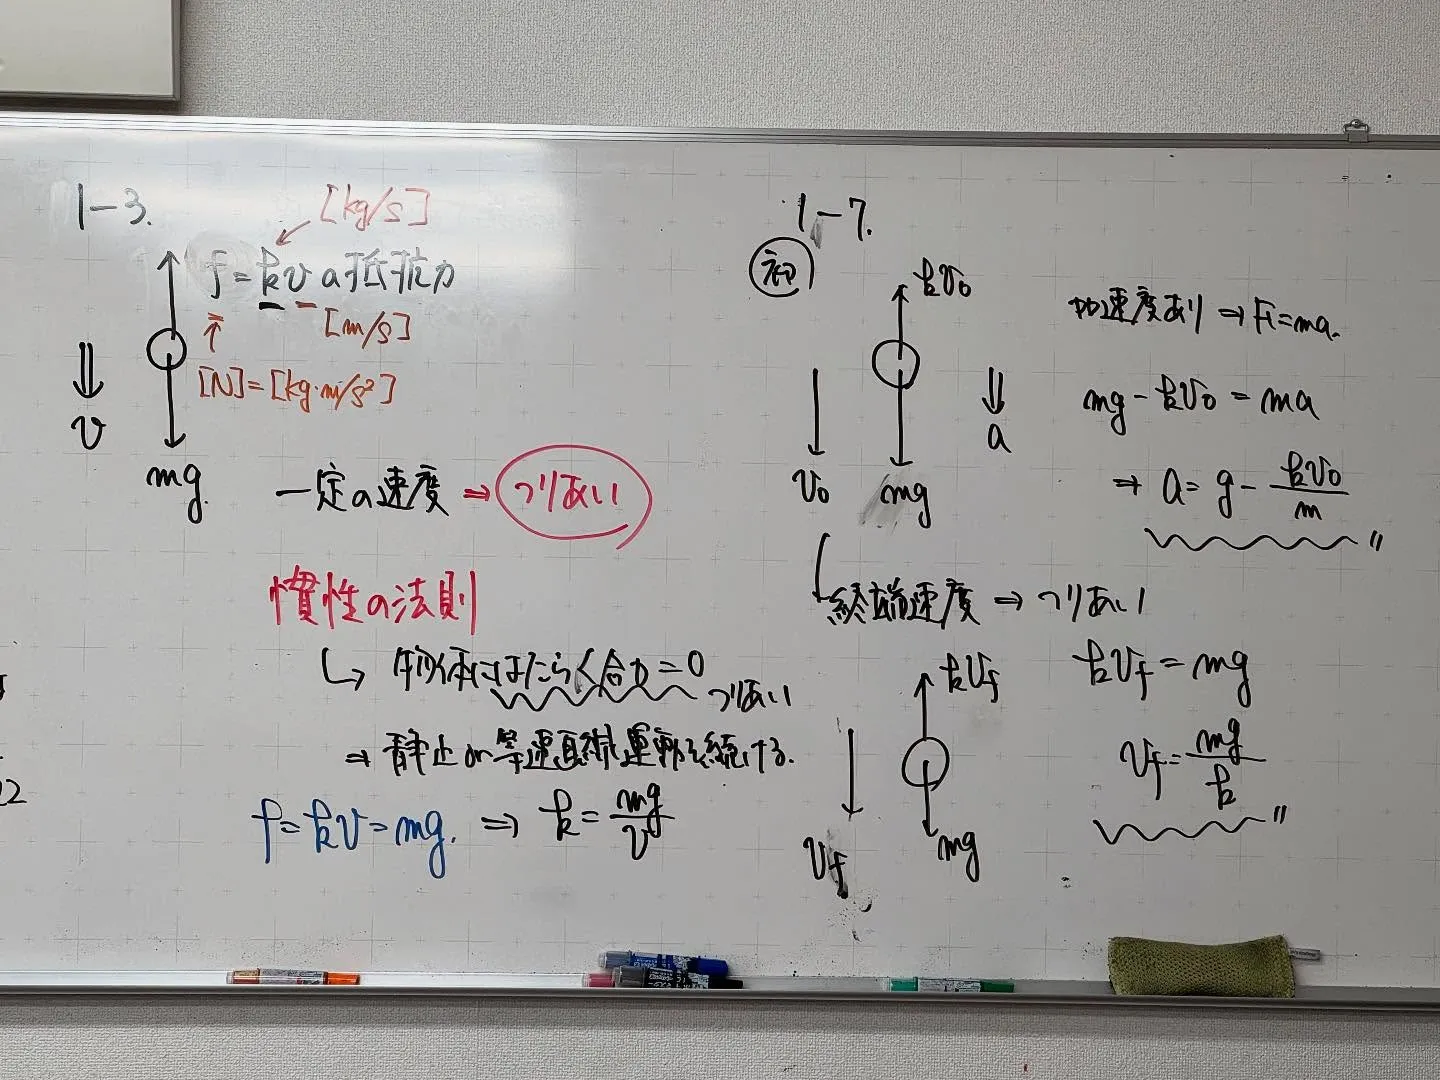 1-3.
[kg/s]
f = kv の抵抗力
[m/s]
[N]=[kg·m/s²]
v
mg
一定の速度 ⇒ つりあい
慣性の法則
↳ 物体にはたらく合力=0
つりあい
⇒ 静止 or 等速直線運動を続ける.
f=kv=mg. ⇒ k=mg/v
1-7.
初
kv₀
加速度あり ⇒ F=ma.
mg-kv₀=ma
a
v₀
mg
⇒ a=g-kv₀/m 〃
終端速度 ⇒ つりあい
kvf
kvf=mg
vf=mg/k 〃
vf
mg